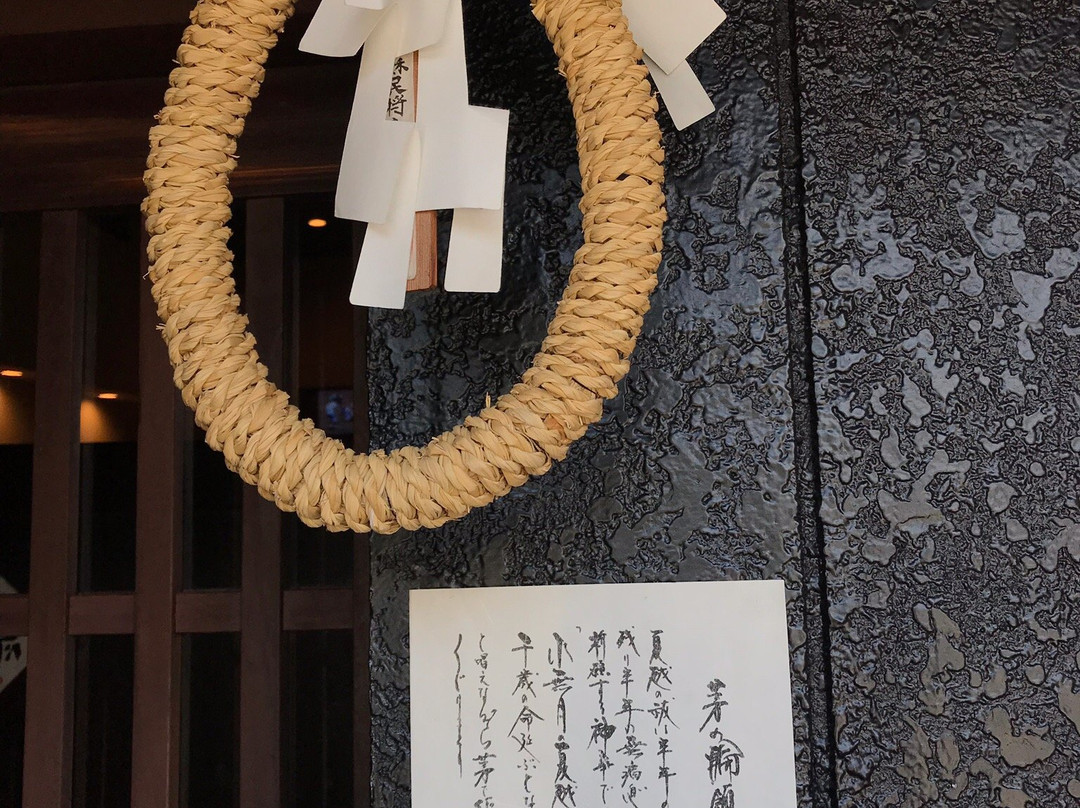 蘇民将
茅の輪
夏越の祓は半年の
残り半年の無病息
祈願する神事で
「水無月の夏越
千歳の命延ぶと
と唱えながら茅の
くぐり